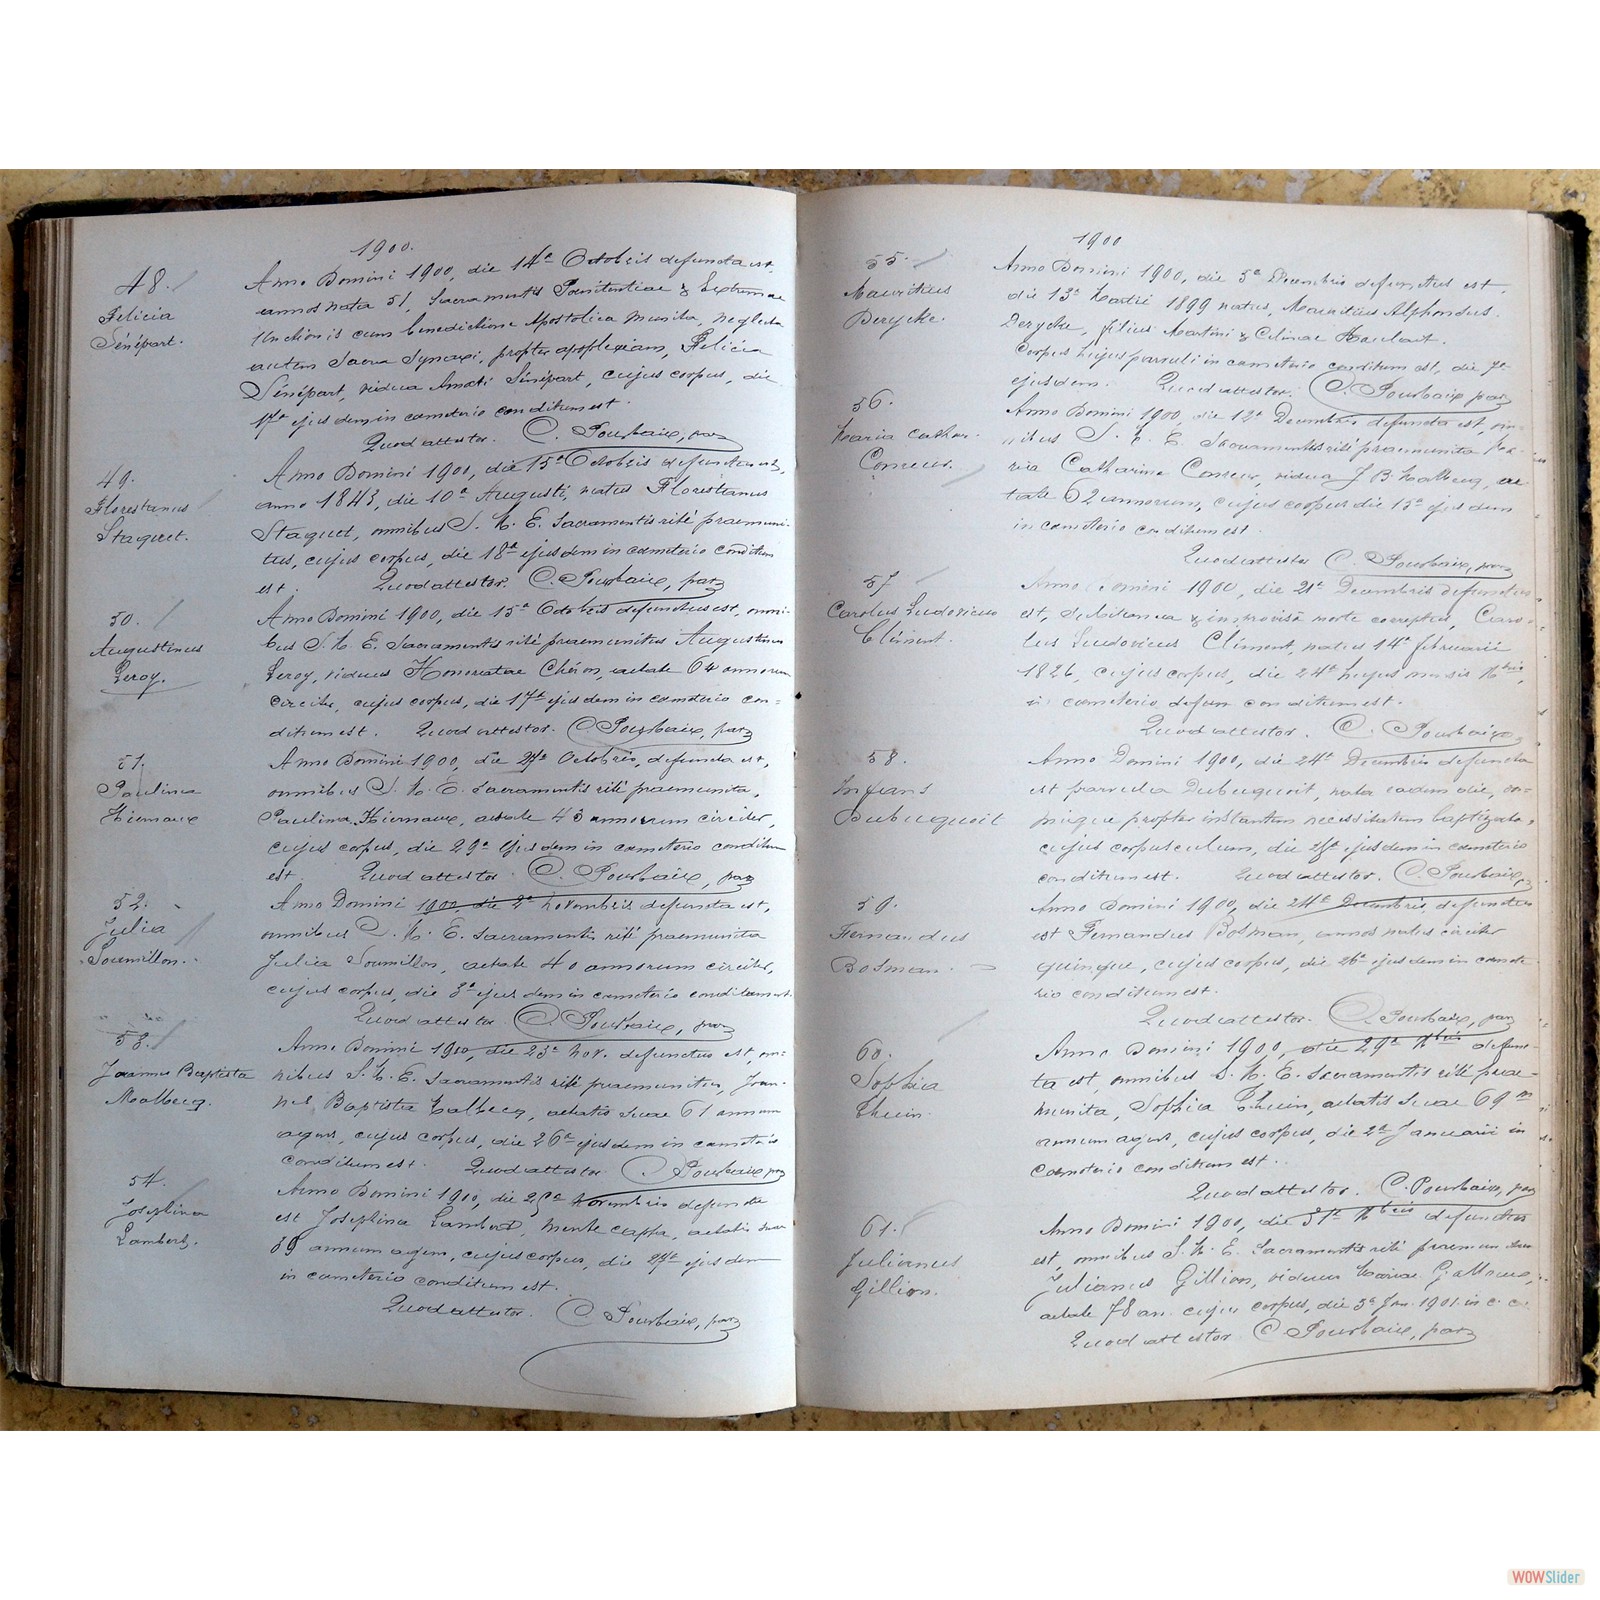 1900.
48.
Felicia
Sénépart.
Anno Domini 1900, die 14a Octobris defuncta est,
annos nata 51, Sacramentis Poenitentiae & Extremae
Unctionis cum benedictione Apostolica munita, neglecta
autem Sacra Synaxi, propter apoplexiam, Felicia
Sénépart, vidua Amati Sénépart, cujus corpus, die
17a ejusdem in cameterio conditum est.
Quod attestor. C. Pourbaix, par
49.
Florestanus
Staquet.
Anno Domini 1900, die 15a Octobris defunctus est,
anno 1843, die 10a Augusti, natus Florestanus
Staquet, omnibus S. M. E. Sacramentis rité praemuni-
tus, cujus corpus, die 18a ejusdem in cameterio conditum
est. Quod attestor. C. Pourbaix, par
50.
Augustinus
Leroy.
Anno Domini 1900, die 15a Octobris defunctus est, omni-
bus S. M. E. Sacramentis rité praemunitus Augustinus
Leroy, viduus Honoratae Chéron, aetate 64 annorum
circiter, cujus corpus, die 17a ejusdem in cameterio con-
ditum est. Quod attestor. C. Pourbaix, par
51.
Paulina
Hiernaux
Anno Domini 1900, die 27a Octobris, defuncta est,
omnibus S. M. E. Sacramentis rité praemunita,
Paulina Hiernaux, aetate 43 annorum circiter,
cujus corpus, die 29a ejusdem in cameterio conditum
est. Quod attestor. C. Pourbaix, par
52.
Julia
Soumillon.
Anno Domini 1900, die 2a Novembris defuncta est,
omnibus S. M. E. Sacramentis rité praemunita
Julia Soumillon, aetate 40 annorum circiter,
cujus corpus, die 3a ejusdem in cameterio conditum est.
Quod attestor. C. Pourbaix, par
53.
Joannes Baptista
Malbecq.
Anno Domini 1900, die 23a Nov. defunctus est, om-
nibus S. M. E. Sacramentis rité praemunitus, Joan-
nes Baptista Malbecq, aetatis suae 61 annum
agens, cujus corpus, die 26a ejusdem in cameterio
conditum est. Quod attestor. C. Pourbaix, par
54.
Josephina
Lambert.
Anno Domini 1900, die 25a Novembris defuncta
est Josephina Lambert, mente capta, aetatis suae
39 annum agens, cujus corpus, die 27a ejusdem
in cameterio conditum est.
Quod attestor. C. Pourbaix, par
1900
55.
Mauritius
Derycke.
Anno Domini 1900, die 5a Decembris defunctus est,
die 13a Martii 1899 natus, Mauritius Alphondus
Derycke, filius Martini & Celinae
Corpus hujus parvuli in cameterio conditum est, die 7a
ejusdem. Quod attestor. C. Pourbaix, par
56.
Maria Cathar.
Conreur.
Anno Domini 1900, die 12a Decembris defuncta est, om-
nibus S. M. E. Sacramentis rité praemunita Ma-
ria Catharina Conreur, vidua J B Malbecq, ae
tate 62 annorum, cujus corpus die 15a ejusdem
in cameterio conditum est
Quod attestor C. Pourbaix, par
57
Carolus Ludovicus
Clément.
Anno Domini 1900, die 21a Decembris defunctus
est, subitanea & improvisâ morte correptus, Caro-
lus Ludovicus Clément, natus 14a februarii
1826, cujus corpus, die 24a hujus mensis Xbris,
in cameterio conditum est.
Quod attestor. C. Pourbaix
58.
Infans
Dubuquoit
Anno Domini 1900, die 24a Decembris defuncta
est parvula Dubuquoit, nata eadem die,
propter instantem necessitatem baptizata,
cujus corpusculum, die ejusdem in cameterio
conditum est. Quod attestor. C. Pourbaix,
59.
Fernandus
Bosman.
Anno Domini 1900, die 24a Decembris, defunctus
est Fernandus Bosman, annos natus circiter
quinque, cujus corpus, die 26a ejusdem in camete
rio conditum est.
Quod attestor. C. Pourbaix, par
60.
Sophia
Thuin.
Anno Domini 1900, die 29a Xbris defunc-
ta est, omnibus S. M. E. Sacramentis rité prae-
munita, Sophia Thuin, aetatis suae 69m
annum agens, cujus corpus, die 2a Januarii in
cameterio conditum est.
Quod attestor. C. Pourbaix, par
61.
Julianus
Gillion.
Anno Domini 1900, die 31a Xbris defunctus
est, omnibus S. M. E. Sacramentis rité praemunitus
Julianus Gillion, viduus Mariae
aetate 78 an. cujus corpus, die 3a Jan. 1901. in c. c.
Quod attestor C. Pourbaix, par
WOWSlider